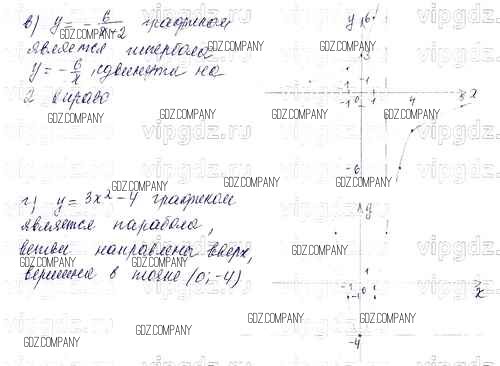 в) y = - 6/x-2 графиком
является гипербола
y = - 6/x, сдвинутая на
2 вправо
y 6
3
1
-1 0 1 4 8 x
-1
-6
г) y = 3x² - 4 графиком
является парабола,
ветви направлены вверх,
вершина в точке (0; -4)
y
1
-1 0 1 x
-1
-4
GDZ.COMPANY
vipgdz.ru